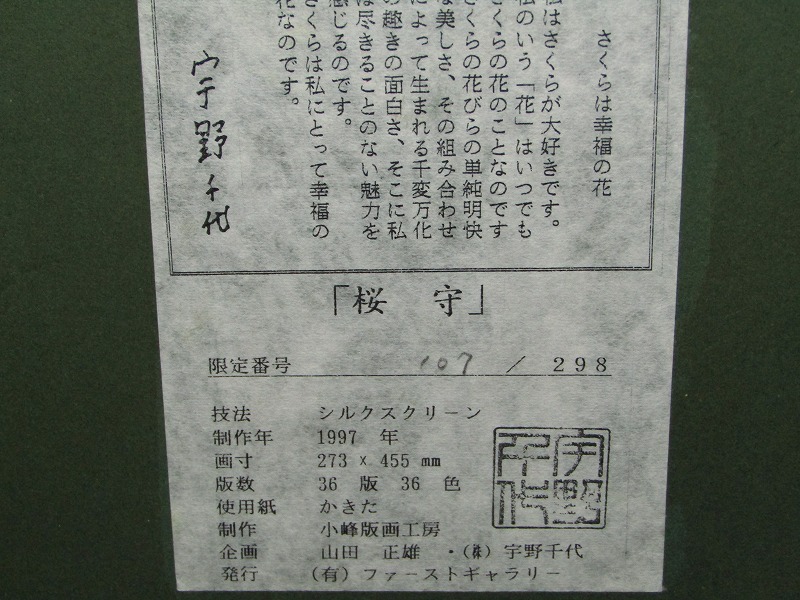 さくらは幸福の花
私はさくらが大好きです。
私のいう「花」はいつでも
さくらの花のことなのです
さくらの花びらの単純明快
な美しさ、その組み合わせ
によって生まれる千変万化
の趣きの面白さ、そこに私
は尽きることのない魅力を
感じるのです。
さくらは私にとって幸福の
花なのです。
宇野千代
「桜 守」
限定番号 107 / 298
技法 シルクスクリーン
制作年 1997 年
画寸 273 x 455 mm
版数 36 版 36 色
使用紙 かきた
制作 小峰版画工房
企画 山田 正雄 ・(株) 宇野千代
発行 (有) ファーストギャラリー
宇野
千代